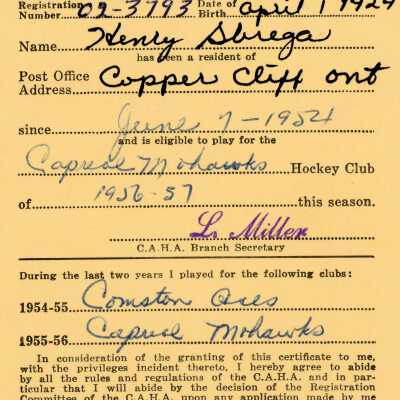 Registration Number 02-3793 Date of Birth april 1 1924
Name Henry Sbrega
has been a resident of
Post Office Address Copper Cliff ont
since June 7-1954
and is eligible to play for the
Capreol Mohawks Hockey Club
of 1956-57 this season.
L. Miller
C.A.H.A. Branch Secretary
During the last two years I played for the following clubs:
1954-55 Comston Aces
1955-56 Capreol Mohawks
In consideration of the granting of this certificate to me,
with the privileges incident thereto, I hereby agree to abide
by all the rules and regulations of the C.A.H.A. and in par-
ticular that I will abide by the decision of the Registration
Committee of the C.A.H.A. upon any application made by me